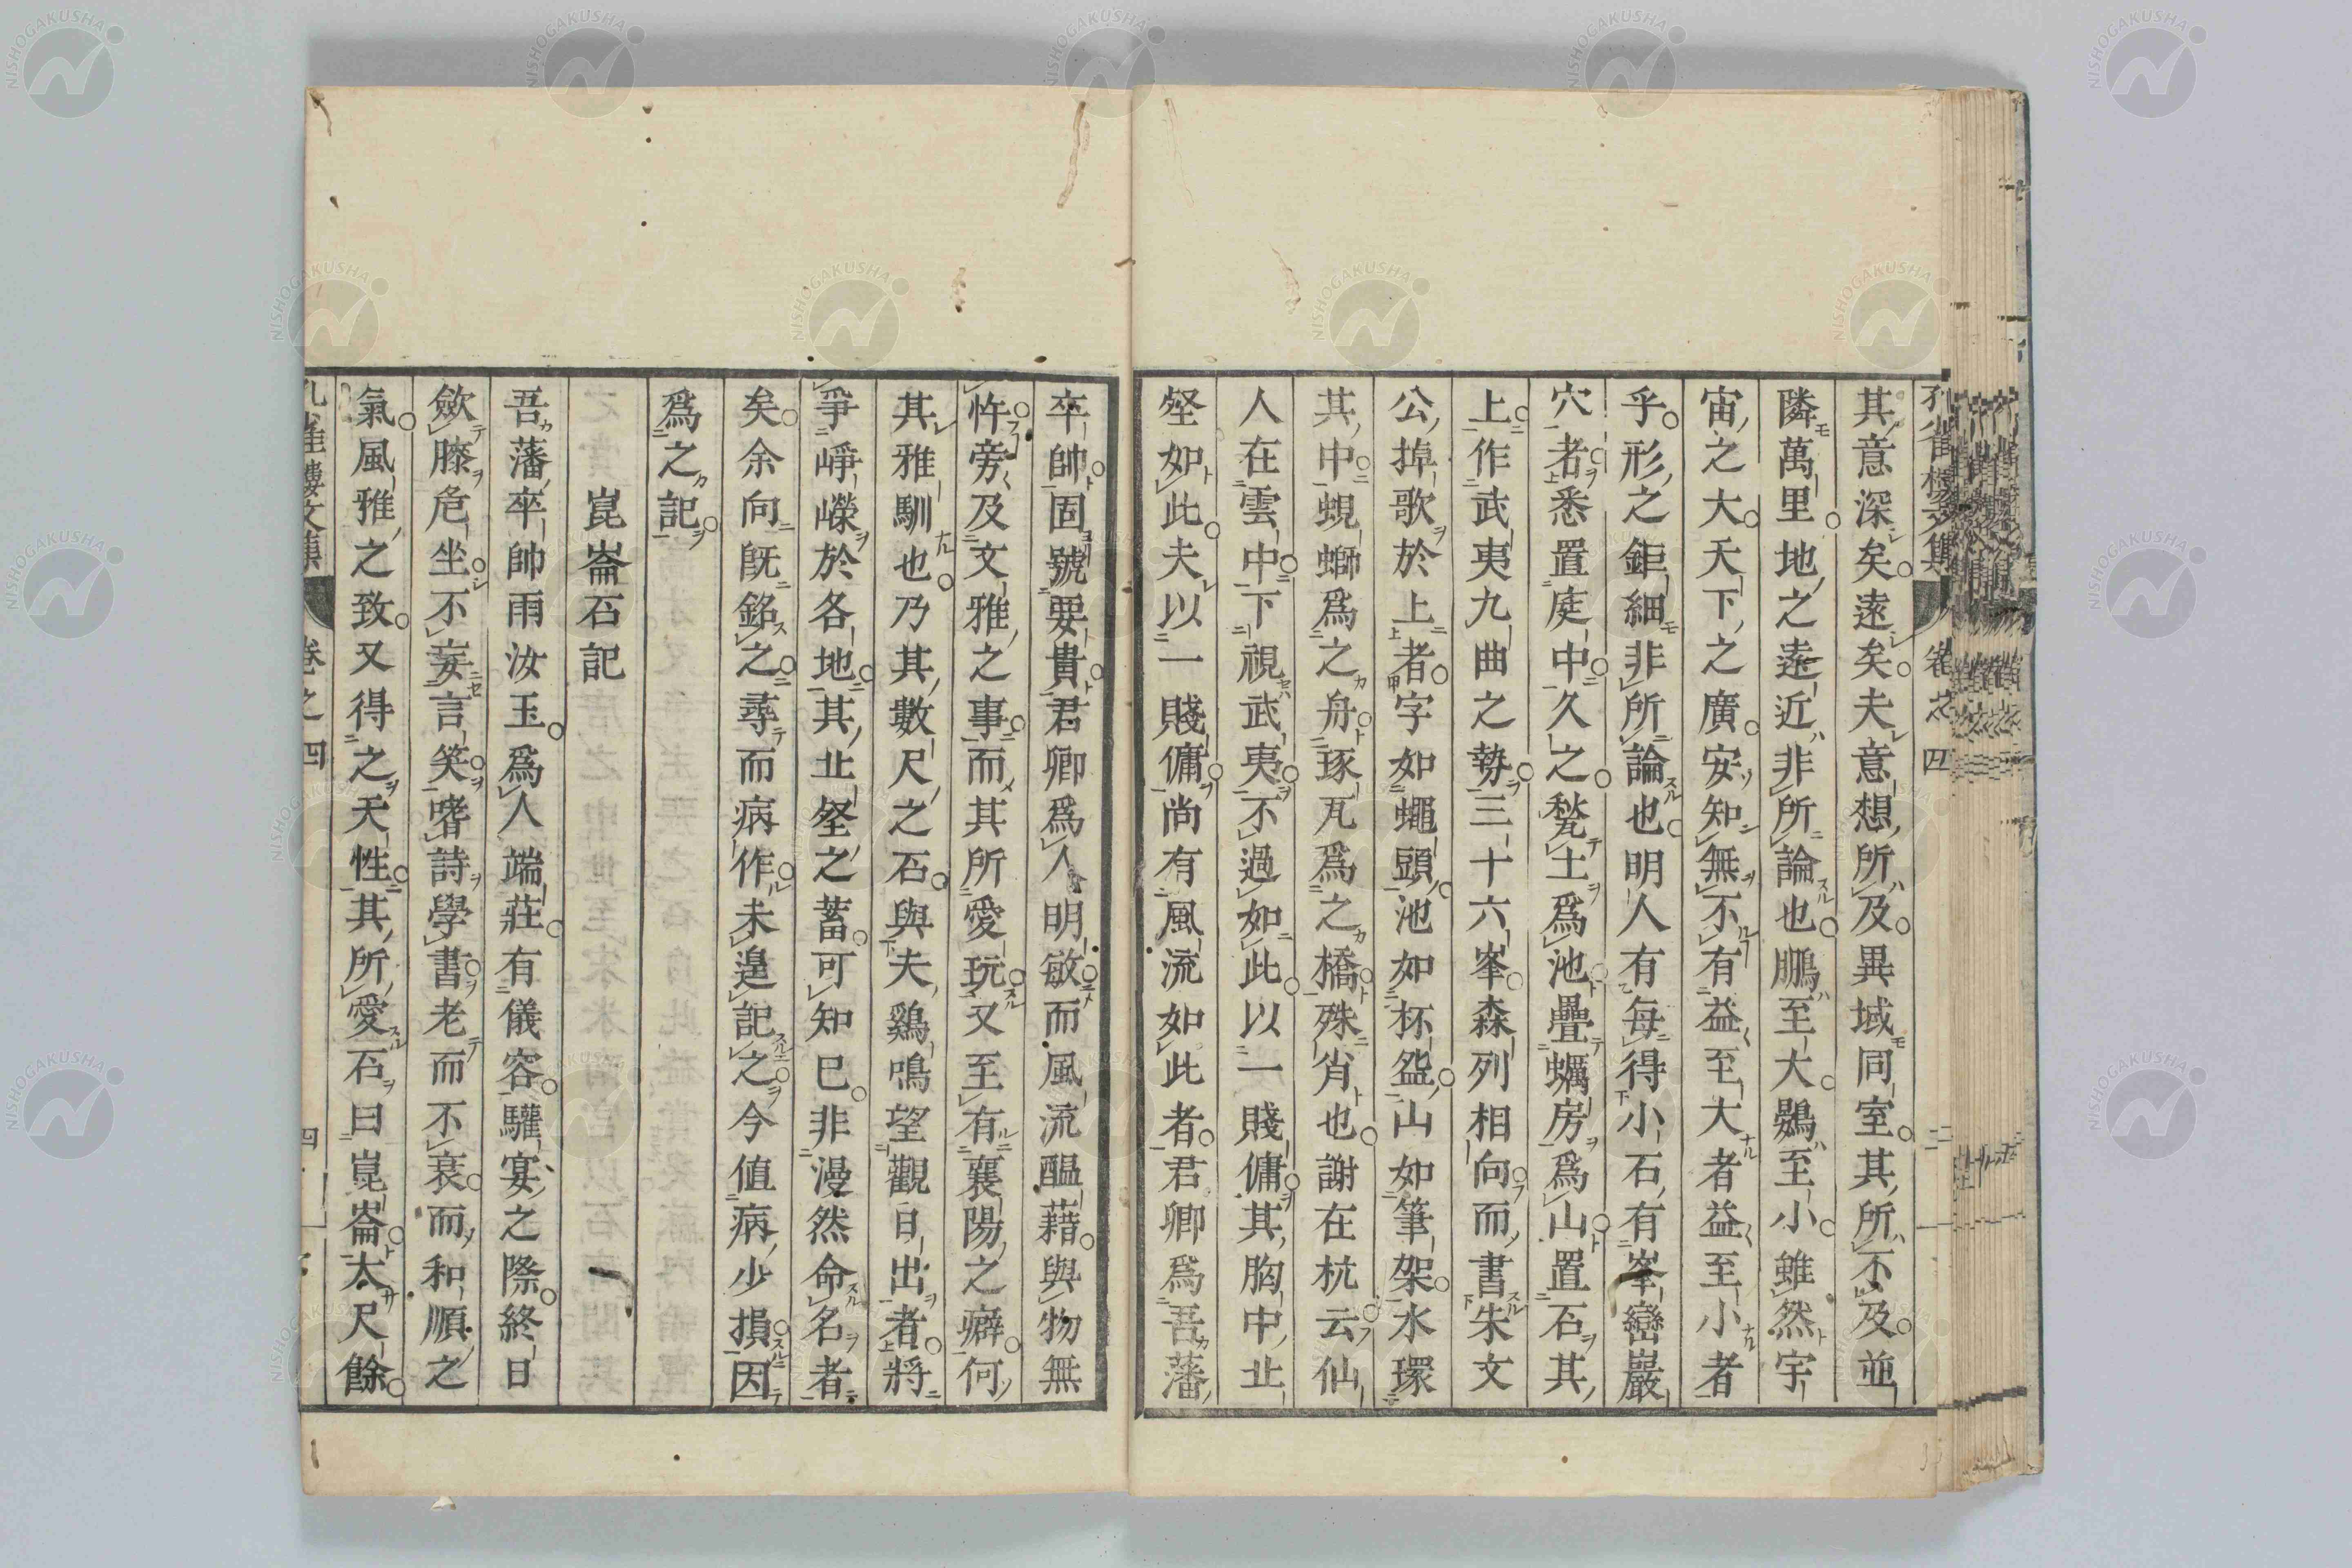 孔雀樓文集 卷之四
其意深矣遠矣夫意想所及異域同室其所不及並
隣萬里地之遠近非所論也鵬至大鷃至小雖然宇
宙之大天下之廣安知無不有益至大者益至小者
乎形之鉅細非所論也明人有每得小石有峯巒巖
穴者悉置庭中久之甃土爲池疊蠣房爲山置石其
上作武夷九曲之勢三十六峯森列相向而書朱文
公掉歌於上者字如蠅頭池如杯盌山如筆架水環
其中蜆螄爲之舟琢瓦爲之橋殊肖也謝在杭云仙
人在雲中下視武夷不過如此以一賤傭其胸中丘
壑如此夫以一賤傭尚有風流如此者君卿爲吾藩
卒帥固號要貴君卿爲人明敏而風流醞藉與物無
忤旁及文雅之事而其所愛玩又至有襄陽之癖何
其雅馴也乃其數尺之石與夫鷄鳴望觀日出者將
爭崢嶸於各地其丘壑之蓄可知已非漫然命名者
矣余向旣銘之尋而病作未遑記之今値病少損因
爲之記
崑崙石記
吾藩卒帥雨汝玉爲人端莊有儀容驩宴之際終日
歛膝危坐不妄言笑嗜詩學書老而不衰而和順之
氣風雅之致又得之天性其所愛石曰崑崙大尺餘
孔雀樓文集 卷之四 四
NISHOGAKUSHA